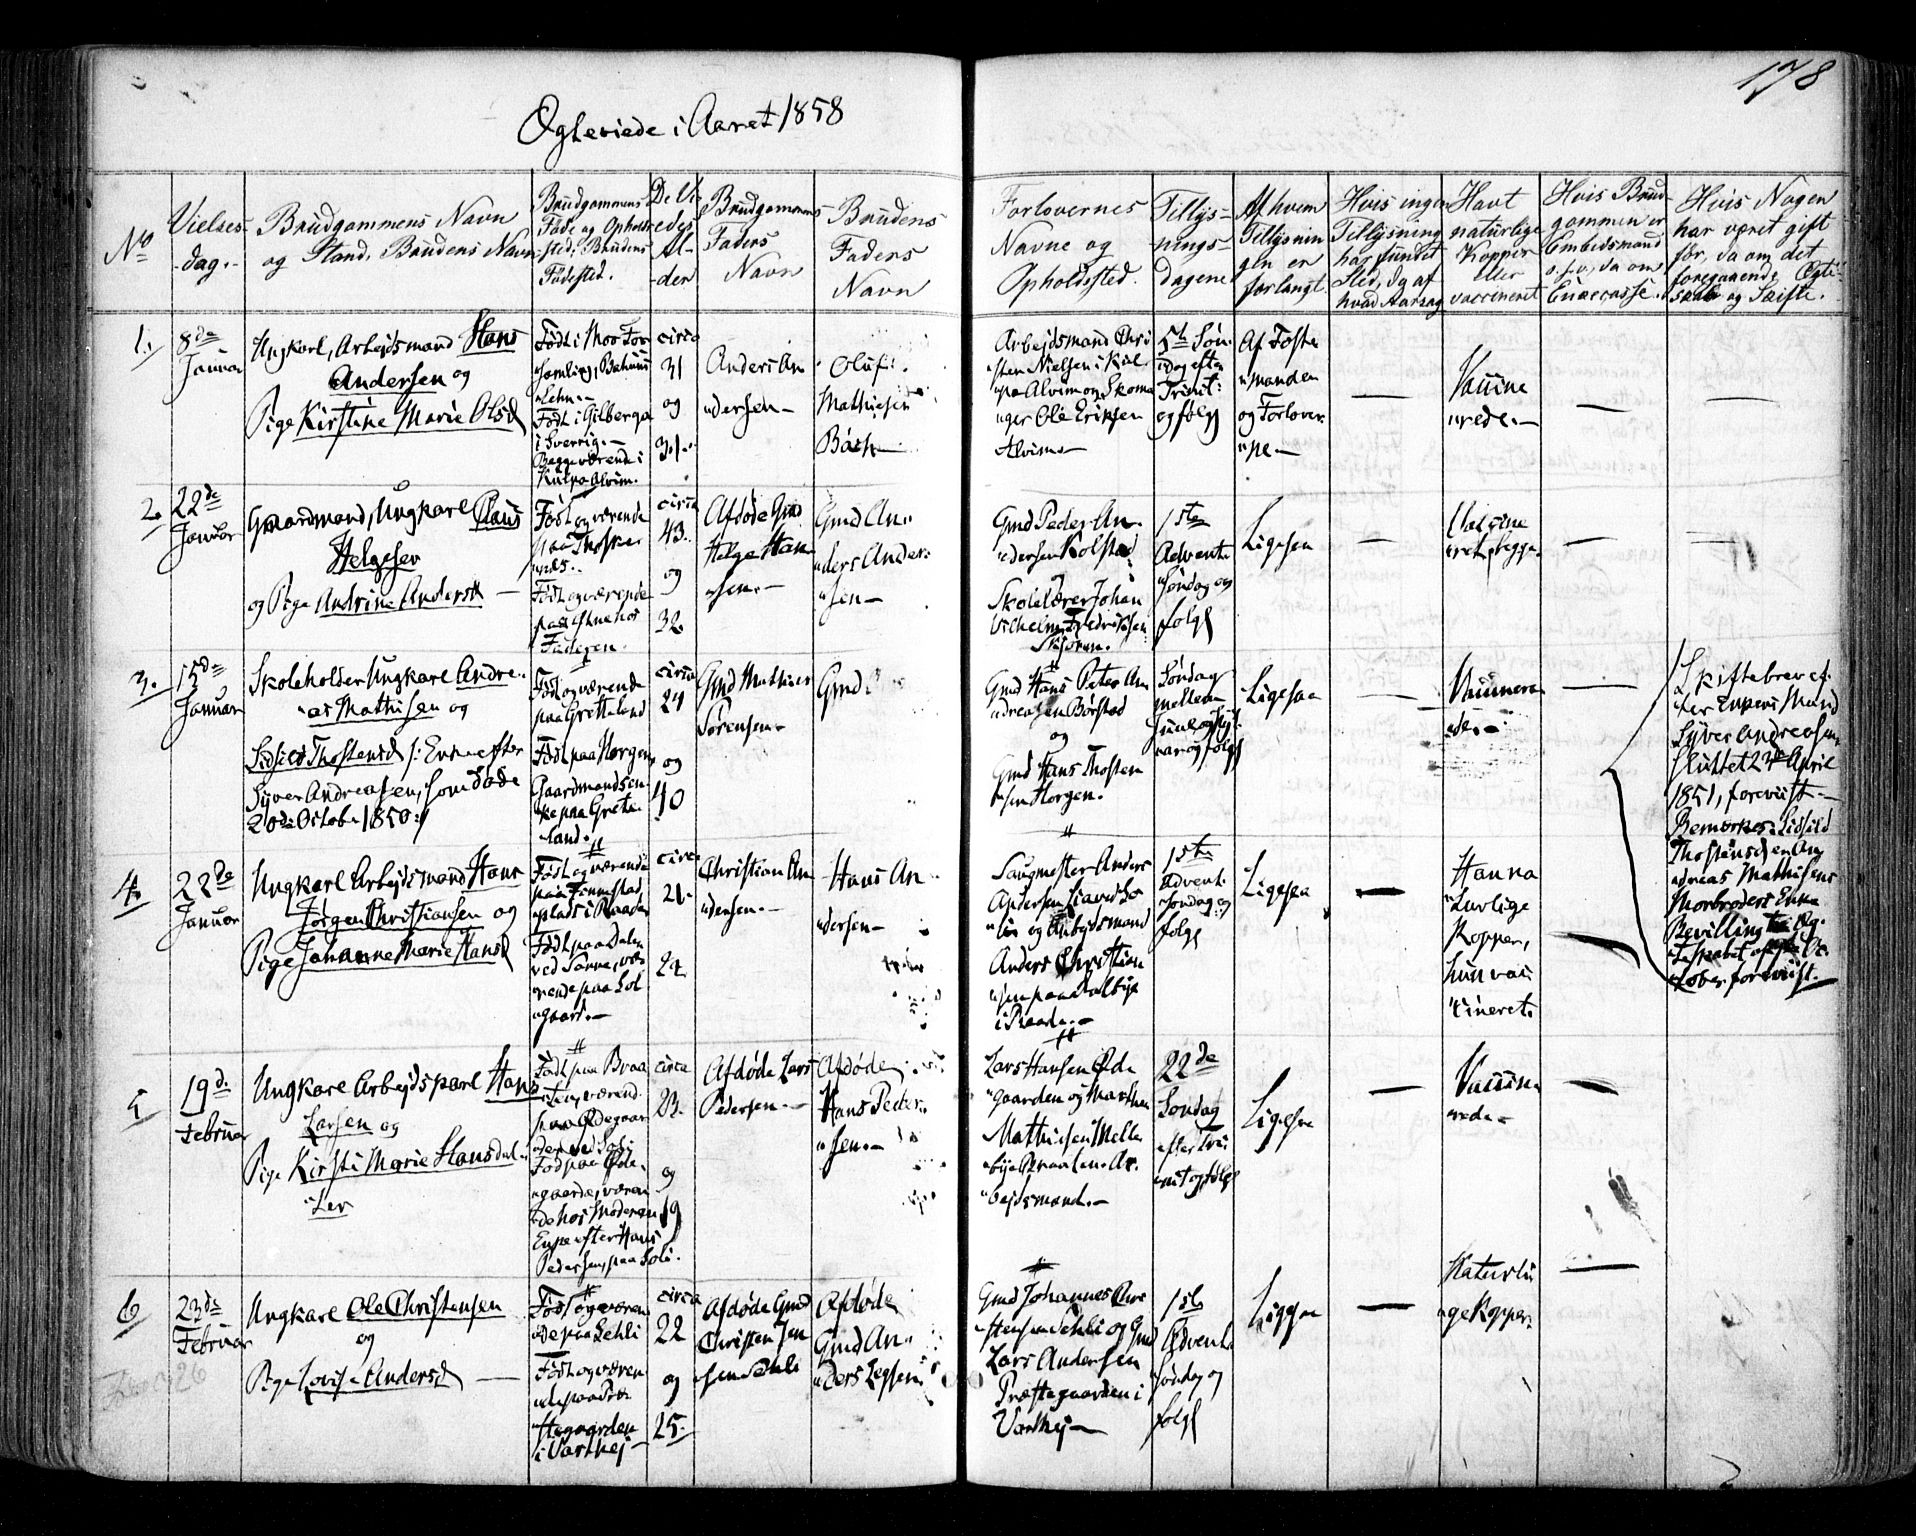 178
Ægteviede i Aaret 1858
No
Vielses-
dag.
Brudgommens Navn
og Stand, Brudens Navn
Brudgommens
Føde og Opholds
sted; Brudens
Fødested.
De Vi-
edes
Al-
der
Brudgommens
Faders
Navn
Brudens
Faders
Navn
Forlovernes
Navne og
Opholdssted.
Tillys-
nings-
dagene
Af hvem
Tillysnin
gen er
forlangt.
Hvis ingen
Tillysning
har fundet
Sted, da af
hvad Aarsag
Havt
naturlige
Kopper
eller
vaccineret
Hvis Brud-
gommen er
Embedsmand
o.s.v., da om
Enkecasse.
Hvis Nogen
har været gift
før, da om det
foregaaende Ægte-
skab og Skifte.
1.
8de
Januar
Ungkarl, Arbejdsmand Hans
Andersen og
Pige Kirstine Marie Olsd
Født i
Født i Gilberga
i Sverrig.
Begge værende i
Alvim.
circa
31
og
31.
Anders An
dersen
Oluf
Mathiesen
Arbejdsmand Chri
sten Nielsen i
Alvim og Skoma
ger Ole Eriksen
Alvim
5te Søn
dag efter
Trinit:
og følg
Af Forlo
manden
og Forlover
ne
Vaccine
rede.
2.
22de
Januar
Gaardmand, Ungkarl Claus
Helgesen
og Pige Andrine Andersd
Født og værende
paa
Født og værende
paa hos
Faderen.
circa
43.
og
32.
Afdøde Gmd
Helge Han
sen.
Gmd An
ders Ander
sen
Gmd Peder An
dersen Kolstad
Skolelærer Johan
Vilhelm Fredriksen
1ste
Advent
Søndag og
følg
Ligesaa
Vaccine
ret begge.
3.
15de
Januar
Skoleholder Ungkarl Andre
as Mathisen og
Sidsild Thostensd /: Enke efter
Syver Andreasen, som døde
20de Octobr 1850:/
Født og værende
paa Gretteland
Født paa Horgen,
Gaardmandsen-
ke paa Grette
land.
circa
24
og
40
Gmd Mathias
Sørensen.
Gmd
Gmd Hans Peter An
dreasen Børstad
og
Gmd Hans Thosten
sen Horgen.
Søndag
mellem
Juul og Nyt
aar og følg
Ligesaa
Vaccinere
de.
Skiftebrev ef-
ter Enkens Mand
Syver Andreasen
sluttet 24de April
1851, foreviist.
Bemærkes: Sidsild
Thostensd en An
dreas Mathisens
Morbroders Enke
Bevilling til Æg-
teskabet af Oc
tober foreviist.
4.
22de
Januar
Ungkarl Arbejdsmand Hans
Jørgen Christiansen og
Pige Johanne Marie Hansd
Født og værende
paa Tomtestad
plads i Raade
Født paa Dalen
ved Sanne, væ
rende paa Sol
gaard.
circa
21.
24
Christian An
dersen.
Hans An
dersen
Saugmester Anders
Andersen
og Arbejdsmand
Anders Christian
sen paa Kalbye
i Raade.
1ste
Advent
Søndag og
følg
Ligesaa
Han na
turlige
Kopper,
hun vac
cineret.
5
19d.
Februar
Ungkarl Arbejdskarl Hans
Larsen og
Pige Kirsti Marie Hansdat
ter
Født paa Braa
ten, værend.
paa Ødegaar
den ved Soli
Født paa Øde
gaarde, væren
de hos Moderen
Enke efter Hans
Pedersen, paa Soli.
circa
23.
og
19
Afdøde Lars
Pedersen.
Afdøde
Hans Peder
sen.
Lars Hansen Øde
gaarden og Marthin
Mathiesen Melle
bye Braaten. Ar
bejdsmand.
22de
Søndag
efter Tri
nit og følg
Ligesaa
Vaccine
rede
6
23de
Februar
Ungkarl Ole Christensen
og
Pige Lovise Andersd
Født og væren
de paa Lehli
Født og væren
de paa Præ
stegaarden
i Varthej
circa
22
og
25.
Afdøde Gmd
Christen Jen
sen Lehli
Afdøde
Gmd An
ders
Gmd Johannes Chri
stensen Lehli og Gmd
Lars Andersen
Præstegaarden i
Varthej
1ste
Advent
Søndag og
følg
Ligesaa
Naturli
ge Kopper.